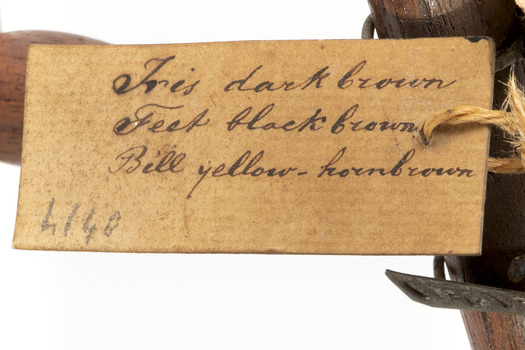 Iris dark brown
Feet black brown
Bill yellow-hornbrown